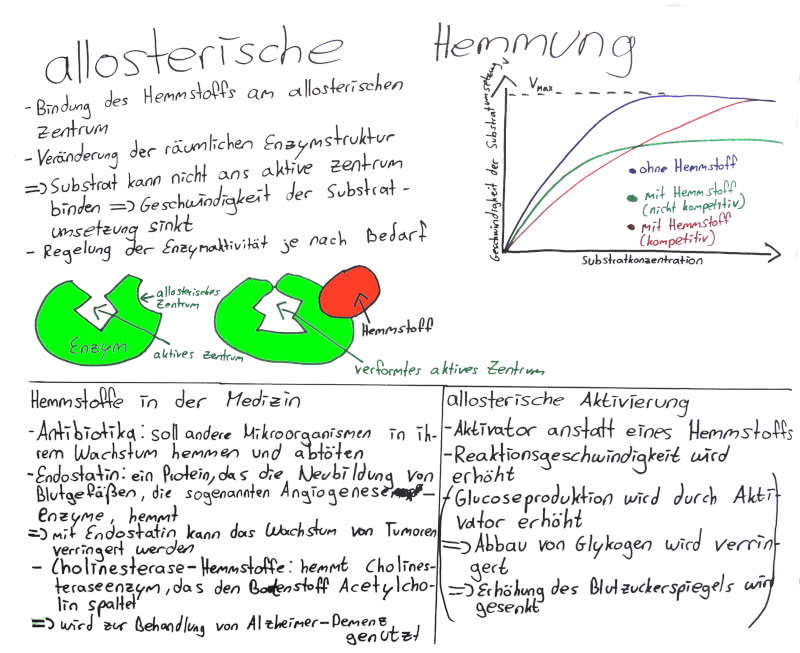 allosterische Hemmung
- Bindung des Hemmstoffs am allosterischen
zentrum
- Veränderung der räumlichen Enzymstruktur
=> Substrat kann nicht ans aktive zentrum
binden => Geschwindigkeit der Substrat-
umsetzung sinkt
- Regelung der Enzymaktivität je nach Bedarf
Geschwindigkeit der Substratumsetzung
v
VMax
ohne Hemmstoff
mit Hemmstoff
(nicht kompetitiv)
mit Hemmstoff
(kompetitiv)
Substratkonzentration
allosterisches
Zentrum
Enzym
aktives Zentrum
Hemmstoff
verformtes aktives Zentrum
Hemmstoffe in der Medizin
- Antibiotika: soll andere Mikroorganismen in ih-
rem Wachstum hemmen und abtöten
- Endostatin: ein Protein, das die Neubildung von
Blutgefäßen, die sogenannten Angiogenese-
enzyme, hemmt
=> mit Endostatin kann das Wachstum von Tumoren
verringert werden
- Cholinesterase-Hemmstoffe: hemmt Cholines-
teraseenzym, das den Botenstoff Acetylcho-
lin spaltet
=> wird zur Behandlung von Alzheimer-Demenz
genutzt
allosterische Aktivierung
- Aktivator anstatt eines Hemmstoffs
- Reaktionsgeschwindigkeit wird
erhöht
- Glucoseproduktion wird durch Akti-
vator erhöht
=> Abbau von Glykogen wird verrin-
gert
=> Erhöhung des Blutzuckerspiegels wird
gesenkt